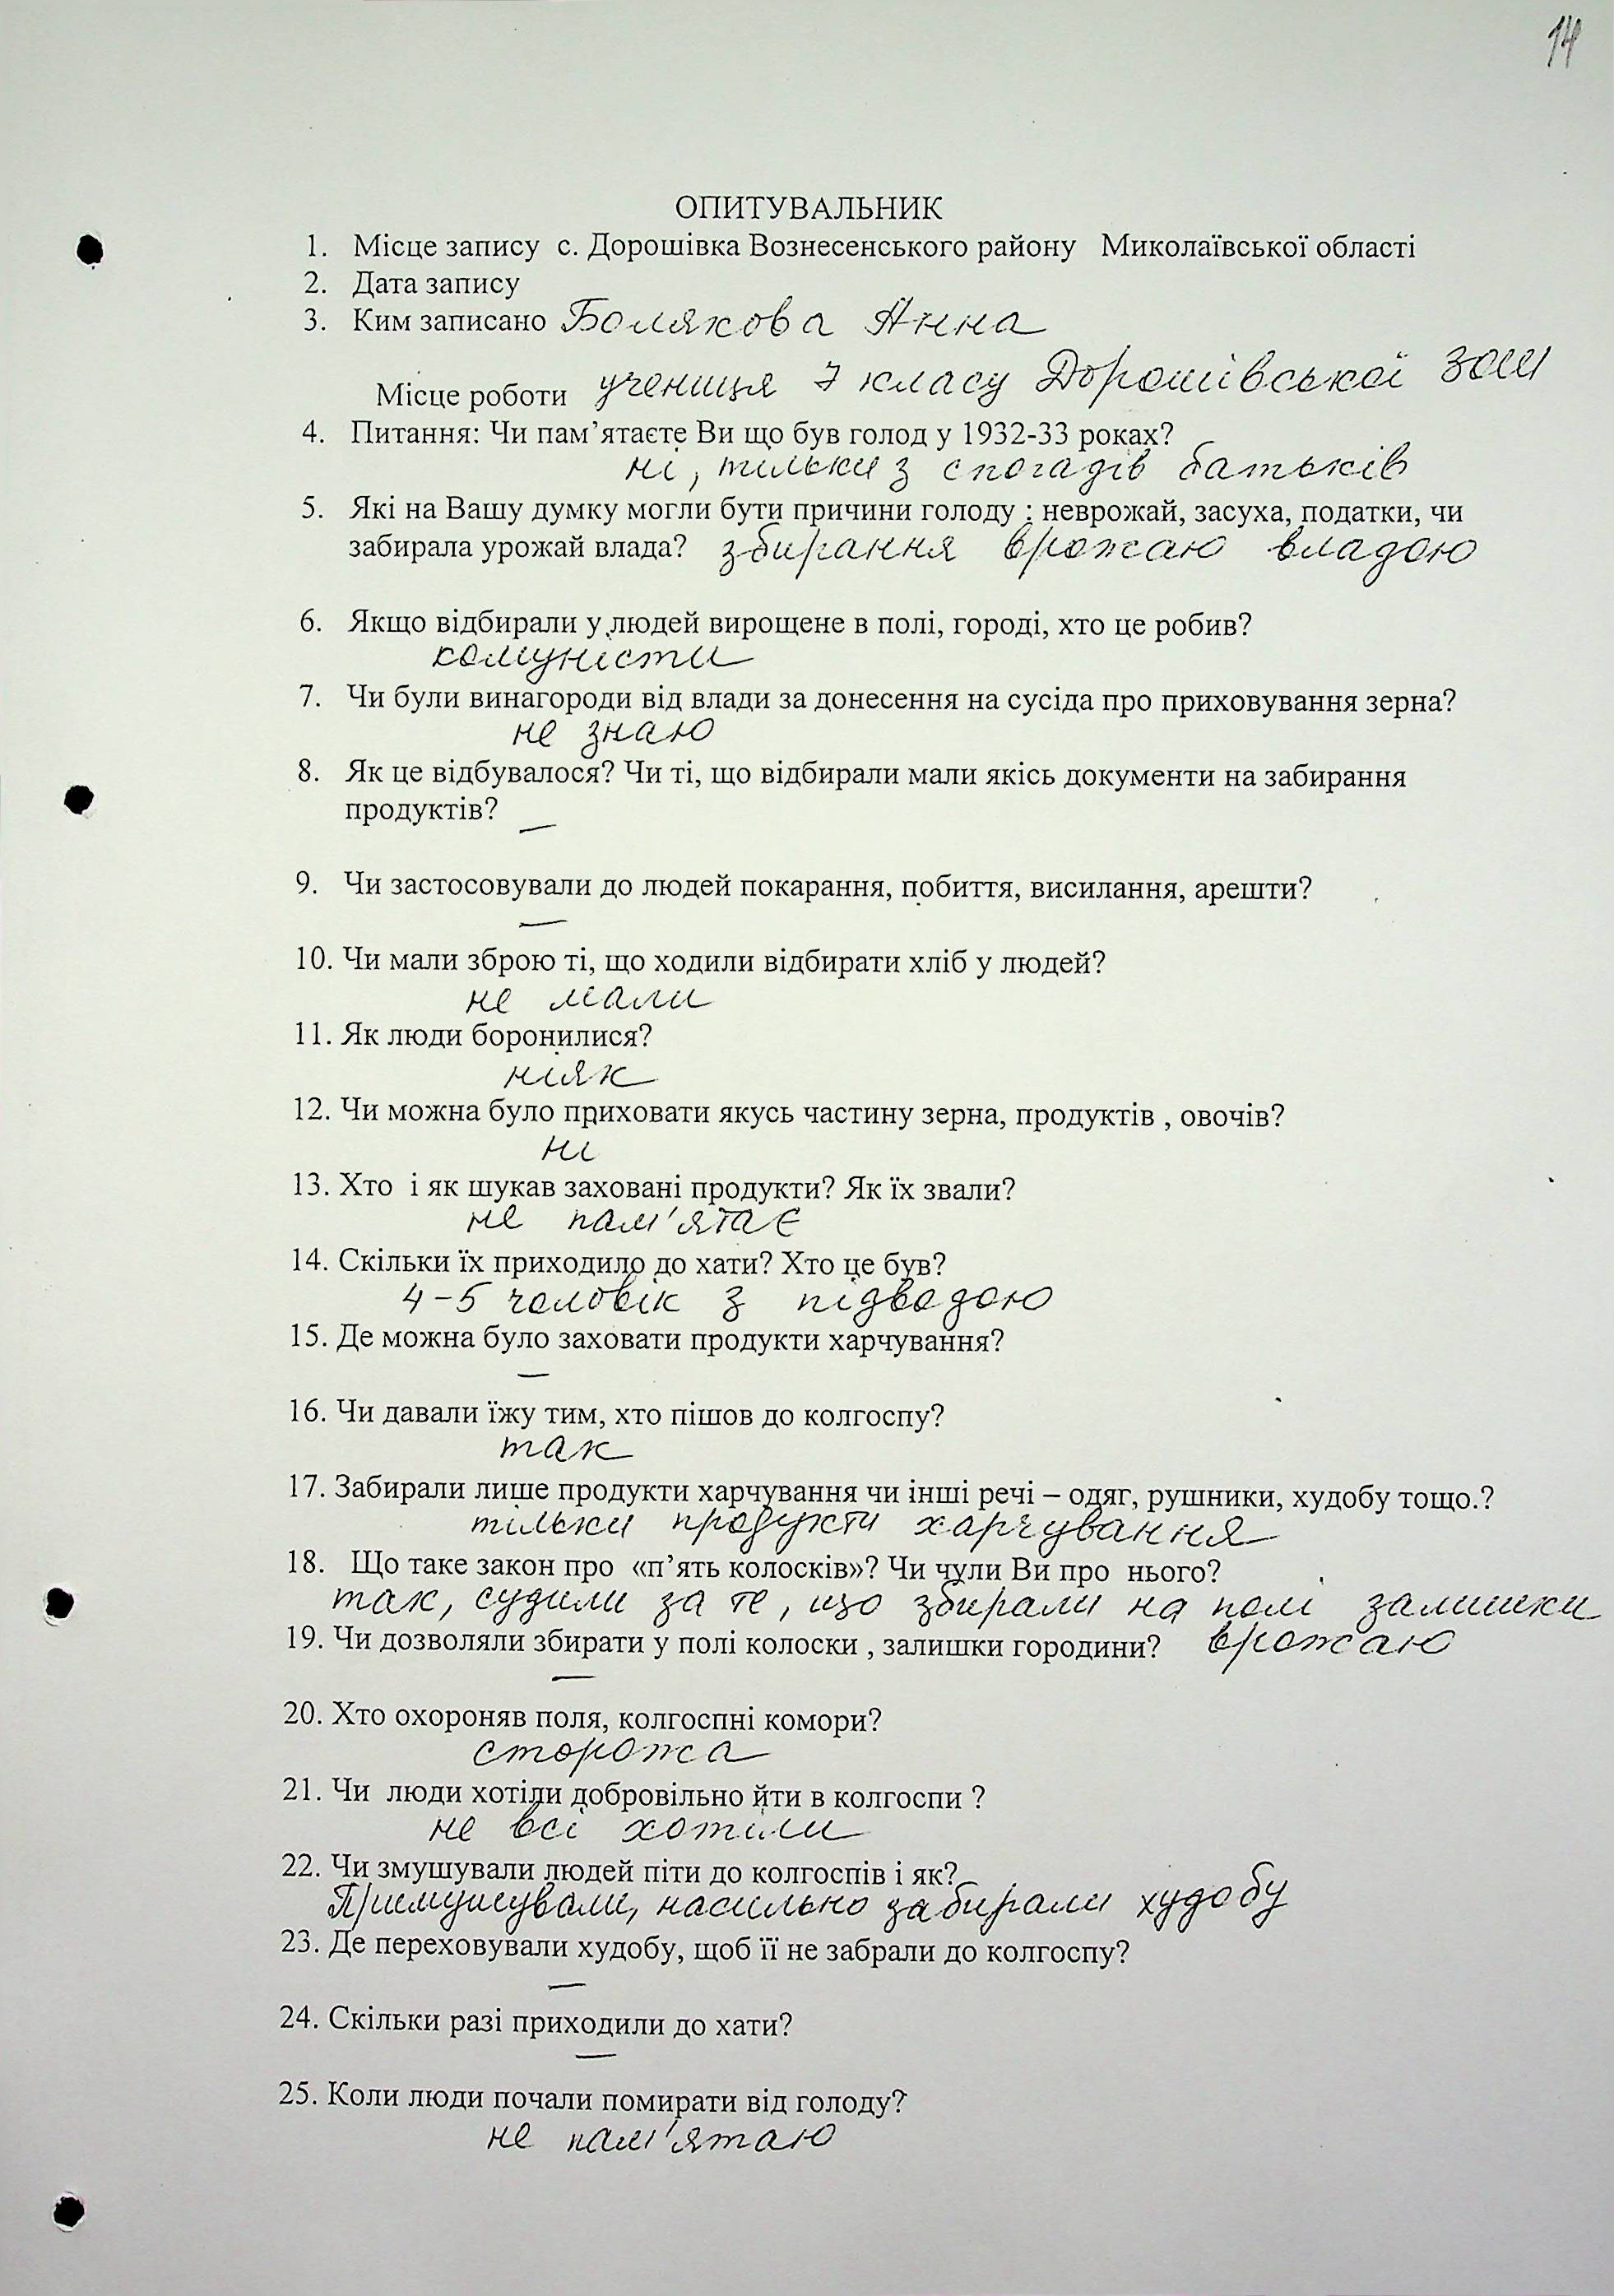 14
ОПИТУВАЛЬНИК
1. Місце запису с. Дорошівка Вознесенського району Миколаївської області
2. Дата запису
3. Ким записано Болякова Анна
Місце роботи учениця 7 класу Дорошівської ЗОШ
4. Питання: Чи пам’ятаєте Ви що був голод у 1932-33 роках?
ні, тільки з спогадів батьків
5. Які на Вашу думку могли бути причини голоду : неврожай, засуха, податки, чи
забирала урожай влада? збирання врожаю владою
6. Якщо відбирали у людей вирощене в полі, городі, хто це робив?
комуністи
7. Чи були винагороди від влади за донесення на сусіда про приховування зерна?
не знаю
8. Як це відбувалося? Чи ті, що відбирали мали якісь документи на забирання
продуктів? —
9. Чи застосовували до людей покарання, побиття, висилання, арешти?
—
10. Чи мали зброю ті, що ходили відбирати хліб у людей?
не мали
11. Як люди боронилися?
ніяк
12. Чи можна було приховати якусь частину зерна, продуктів , овочів?
ні
13. Хто і як шукав заховані продукти? Як їх звали?
не пам'ятає
14. Скільки їх приходило до хати? Хто це був?
4-5 чоловік з підводою
15. Де можна було заховати продукти харчування?
—
16. Чи давали їжу тим, хто пішов до колгоспу?
так
17. Забирали лише продукти харчування чи інші речі – одяг, рушники, худобу тощо.?
тільки продукти харчування
18. Що таке закон про «п’ять колосків»? Чи чули Ви про нього?
так, судили за те, що збирали на полі залишки
19. Чи дозволяли збирати у полі колоски , залишки городини? врожаю
—
20. Хто охороняв поля, колгоспні комори?
сторожа
21. Чи люди хотіли добровільно йти в колгоспи ?
не всі хотіли
22. Чи змушували людей піти до колгоспів і як?
Примушували, насильно забирали худобу
23. Де переховували худобу, щоб її не забрали до колгоспу?
—
24. Скільки разі приходили до хати?
—
25. Коли люди почали помирати від голоду?
не пам'ятаю